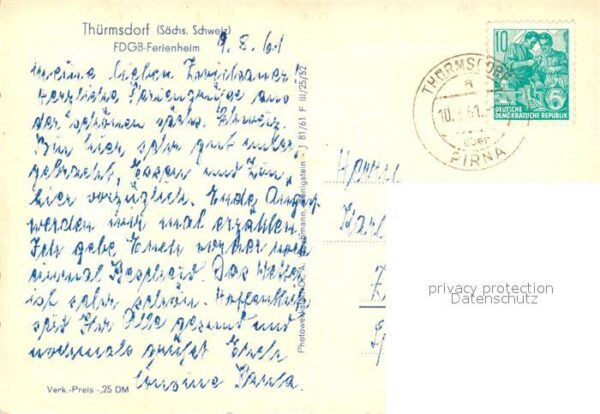 Thürmsdorf (Sächs. Schweiz)
FDGB-Ferienheim
9. 8. 61
Meine lieben
Herzliche Feriengrüße aus
der schönen sächs. Schweiz.
Bin hier sehr gut unter-
gebracht, Essen und
hier vorzüglich. Ende August
werden wir mal erzählen
Ich gebe Euch vorher noch
einmal Bescheid. Das Wetter
ist sehr schön. Hoffentlich
seid Ihr Alle gesund und
nochmals grüßt Euch
Verk.-Preis -,25 DM
Königstein • J 81/61 F III/25/52
10
DEUTSCHE
DEMOKRATISCHE REPUBLIK
THÜRMSDORF
a
10. 8. 61
über
PIRNA
privacy protection
Datenschutz